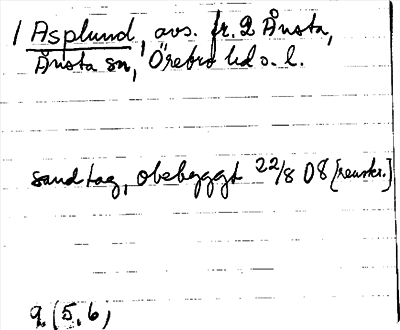 1 Asplund, avs. fr. 2 Ånsta,
Ånsta sn, Örebro hd o. l.
sandtag, obebyggt 22/8 08 [renskr.]
9 (5, 6)